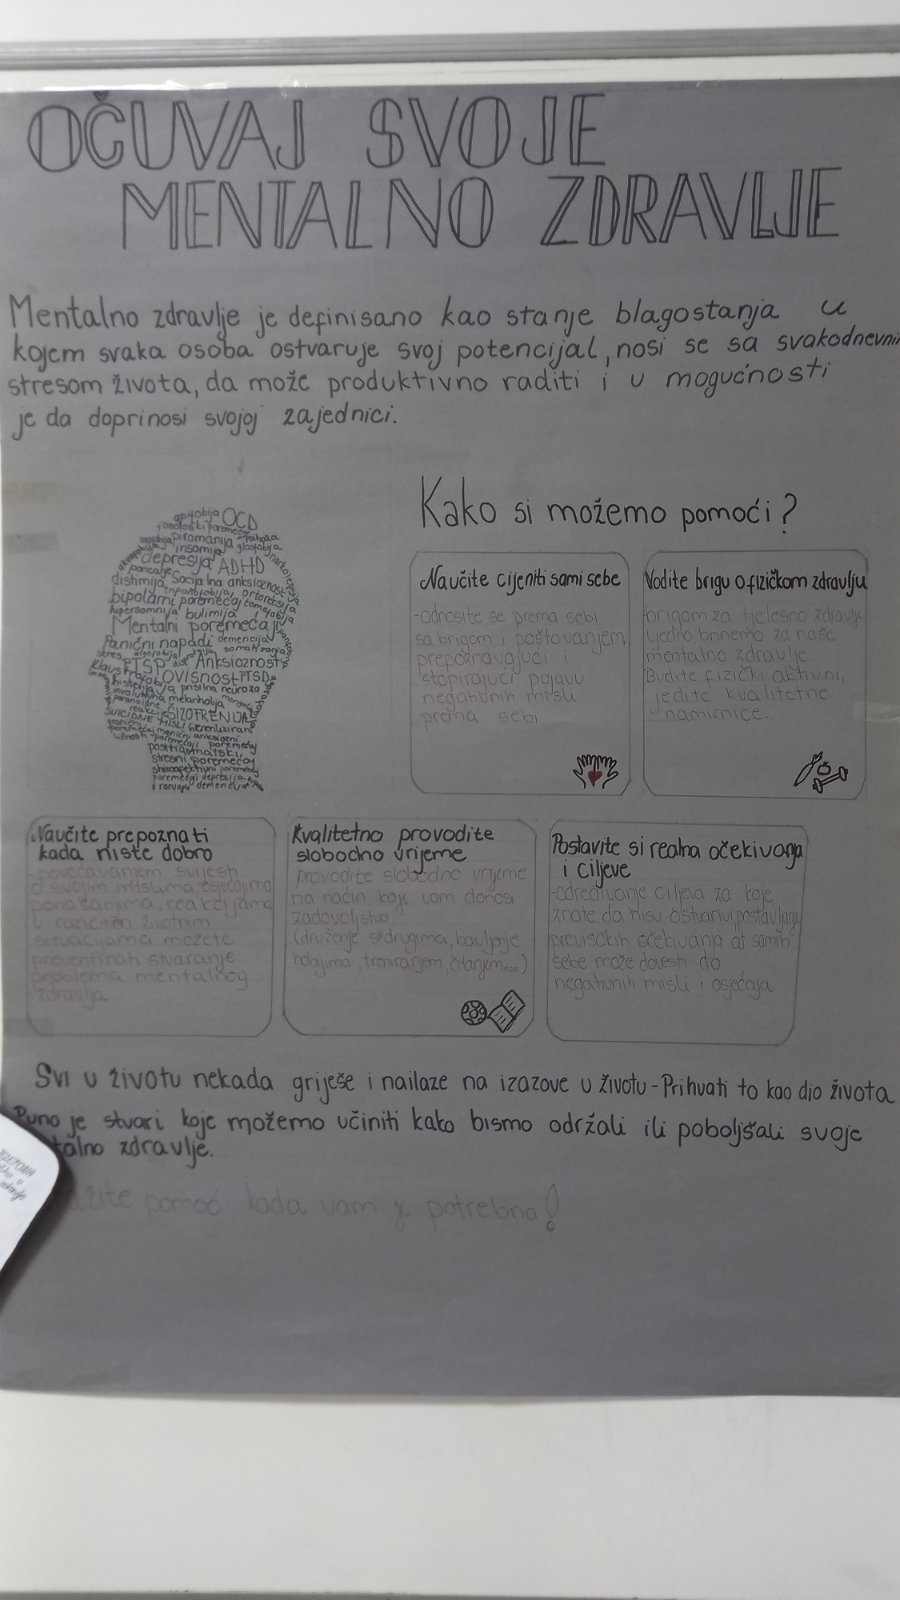 OČUVAJ SVOJE
MENTALNO ZDRAVLJE
Mentalno zdravlje je definisano kao stanje blagostanja u
kojem svaka osoba ostvaruje svoj potencijal, nosi se sa svakodnevnim
stresom života, da može produktivno raditi i u mogućnosti
je da doprinosi svojoj zajednici.
OCD
piromanija
insomija
depresija ADHD
distimija Socijalna anksioznost
bipolarni poremećaj
hipersomnija bulimija
Mentalni poremećaj
Panični napadi demencija
PTSP Anksioznost
OVISNOST PTSD
neuroza
melanholija
SHIZOFRENIJA
SUICIDNE MISLI
posttraumatski
stresni poremećaj
Kako si možemo pomoći?
Naučite cijeniti sami sebe
-odnosite se prema sebi
sa brigom i poštovanjem,
prepoznavajući i
stopirajući pojavu
negativnih misli
prema sebi
Vodite brigu o fizičkom zdravlju
brigom za tjelesno zdravlje
ujedno brinemo za naše
mentalno zdravlje.
Budite fizički aktivni,
jedite kvalitetne
namirnice.
Naučite prepoznati
kada niste dobro
-povećavanjem svijesti
o svojim mislima, osjećajima
ponašanjima, reakcijama
u različitim životnim
situacijama možete
preventirati stvaranje
problema mentalnog
zdravlja
Kvalitetno provodite
slobodno vrijeme
provodite slobodno vrijeme
na način koji vam donosi
zadovoljstvo
(druženje s drugima, bavljenje
hobijima, treniranjem, čitanjem...)
Postavite si realna očekivanja
i ciljeve
-određivanje ciljeva za koje
znate da nisu ostvarivi, postavljanje
previsokih očekivanja od samih
sebe može dovesti do
negativnih misli i osjećaja
Svi u životu nekada griješe i nailaze na izazove u životu - Prihvati to kao dio života
Puno je stvari koje možemo učiniti kako bismo održali ili poboljšali svoje
talno zdravlje.
pomoć kada vam je potrebna!